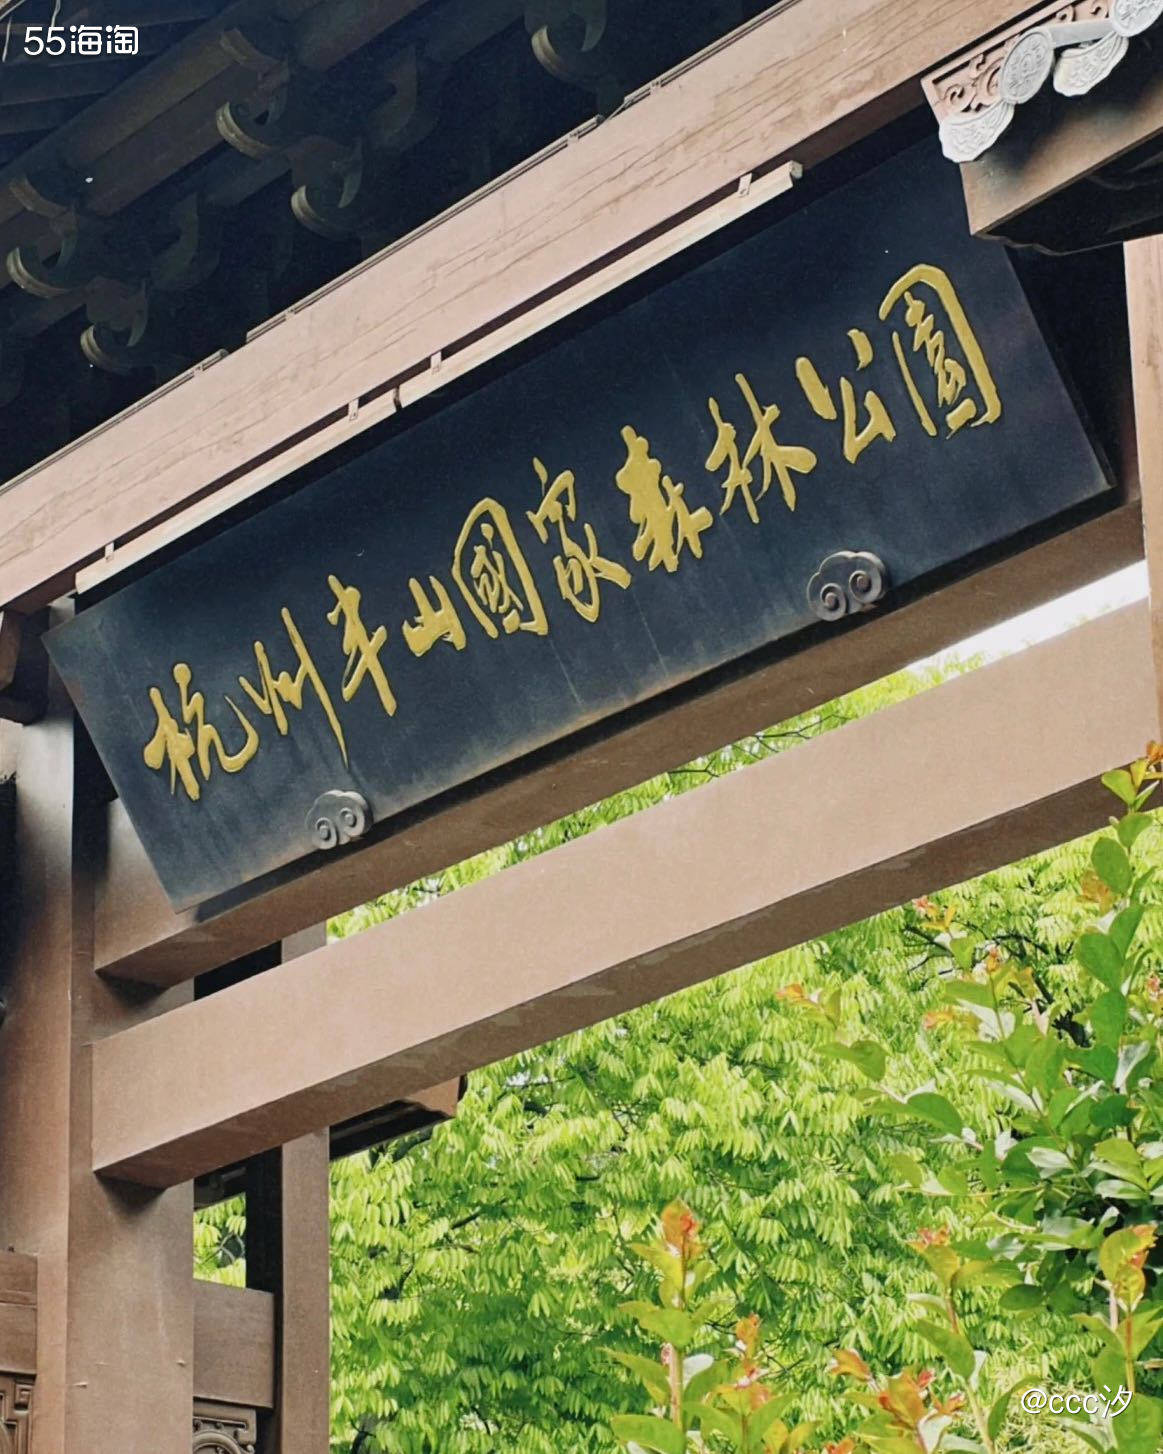 55海淘
杭州半山國家森林公園
@ccc汐